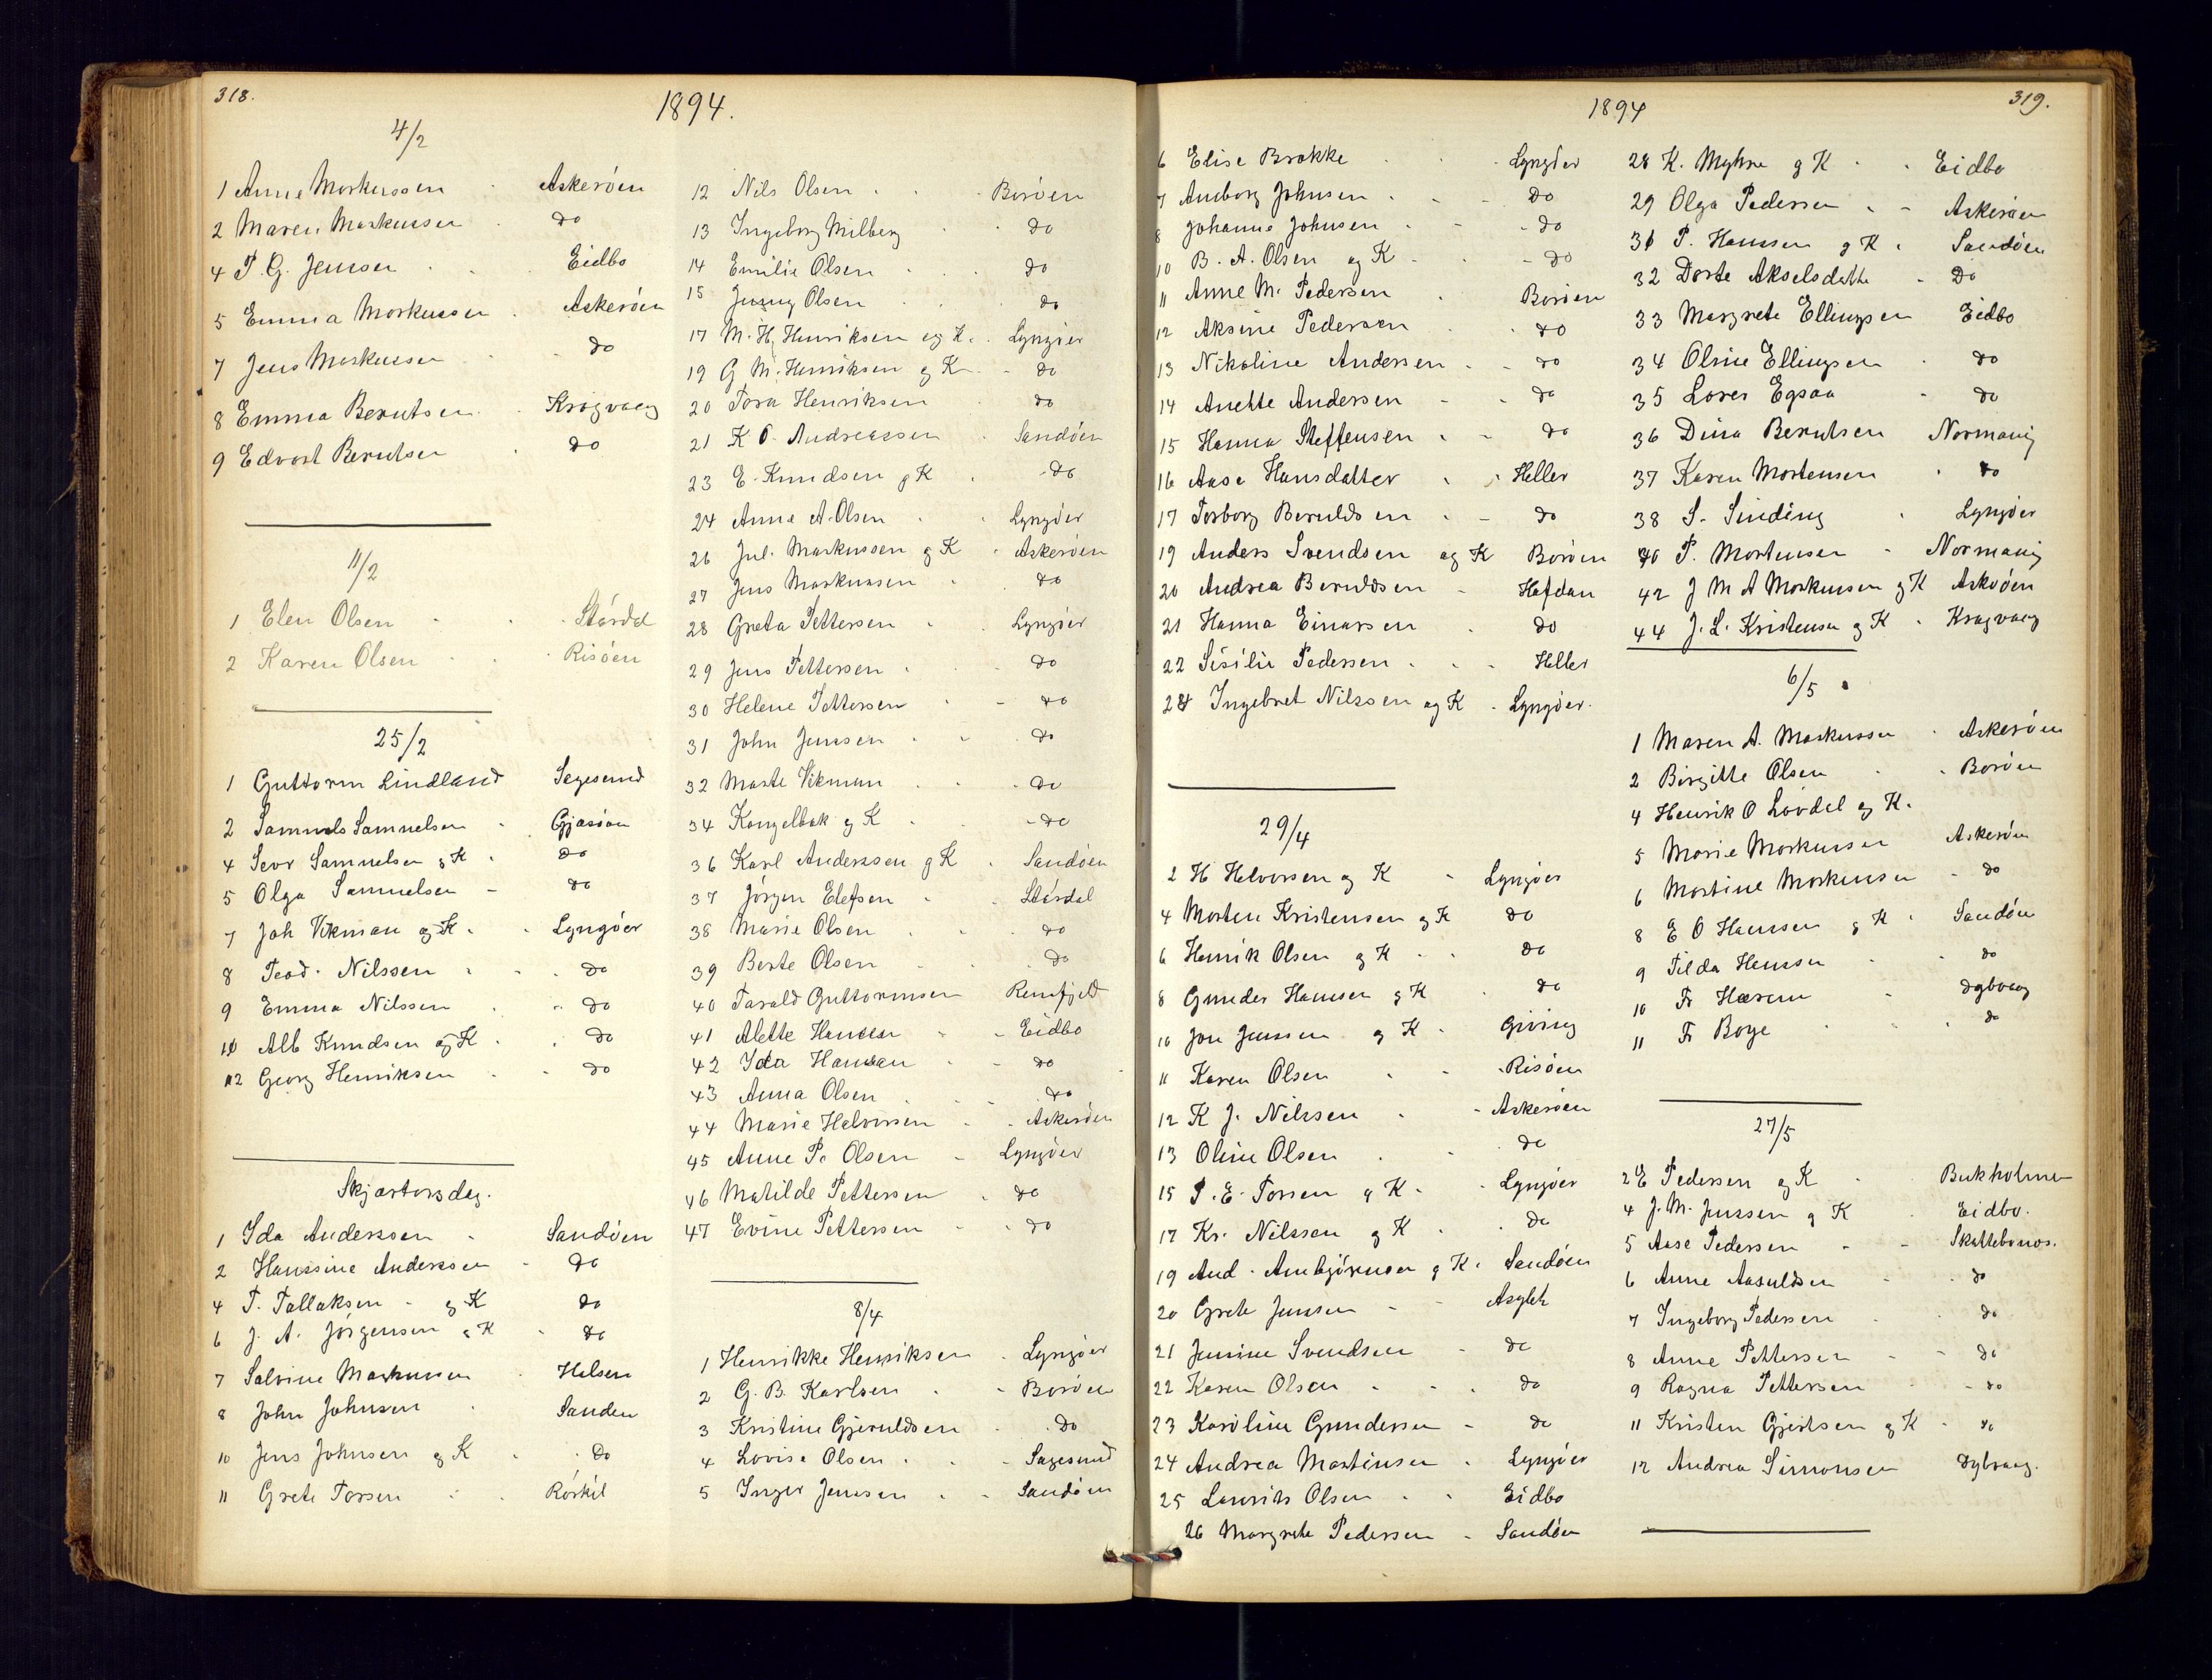 318.
1894.
4/2
1 Anne Markussen Askeröen
2 Maren Markussen do
4 P. G. Jensen Eidbo
5 Emma Markussen Askeröen
7 Jens Markussen do
8 Emma Berntsen Kragvaag
9 Edvart Berntsen do
11/2
1 Elen Olsen Stördal
2 Karen Olsen Risöen
25/2
1 Guttorm Lindland Sagesund
2 Samuels Samuelsen Gjasöen
4 Sevr Samuelsen g K do
5 Olga Samuelsen do
7 Joh Vikman og K. Lyngöer
8 Teod. Nilssen do
9 Emma Nilssen do
11 Alb Knudsen og K do
12 Georg Henriksen do
Skjærtorsdag.
1 Ida Anderssen Sandöen
2 Hanssine Anderssen do
4 T. Tallaksen g K do
6 J. A. Jörgensen g K do
7 Salvine Markussen Holsen
8 John Johnsen Sanden
10 Jens Johnsen g K do
11 Grete Torsen Röskil
12 Nils Olsen Boröen
13 Ingeborg Milberg do
14 Emilie Olsen do
15 Jenny Olsen do
17 M. H. Henriksen og K. Lyngöer
19 G M. Henriksen g K do
20 Tora Henriksen do
21 K O. Andreassen Sandöen
23 E. Knudsen g K do
24 Anna A. Olsen Lyngöer
26 Jul. Markussen g K Askeröen
27 Jens Markussen do
28 Greta Pettersen Lyngöer
29 Jens Pettersen do
30 Helene Pettersen do
31 John Jenssen do
32 Marte Vikman do
34 Kongelbak g K do
36 Karl Anderssen g K Sandöen
37 Jörgen Elefsen Stördal
38 Marie Olsen do
39 Berte Olsen do
40 Tarald Guttormsen Remfjeld
41 Alette Hansen Eidbo
42 Ida Hansen do
43 Anna Olsen do
44 Marie Halvorsen Askeröen
45 Anne P. Olsen Lyngöer
46 Matilde Pettersen do
47 Evine Pettersen do
8/4
1 Henrikke Henriksen Lyngöer
2 G. B. Karlsen Boröen
3 Kristine Gjeruldsen do
4 Lovise Olsen Sagesund
5 Inger Jenssen Sandöen
1894
319.
6 Elise Brakke Lyngöer
7 Anborg Johnsen do
8 Johanne Johnsen do
10 B. A. Olsen og K do
11 Anne M. Pedersen Boröen
12 Aksine Pedersen do
13 Nikoline Andersen do
14 Anette Andersen do
15 Hanna Steffensen do
16 Aase Hansdatter Heller
17 Torborg Beruldsen do
19 Anders Svendsen og K Boröen
20 Andrea Beruldsen Hafdan
21 Hanna Einarsen do
22 Sisilie Pedersen Heller
24 Ingebret Nilssen og K Lyngöer.
29/4
2 H Halvorsen og K Lyngöer
4 Morten Kristensen og K do
6 Henrik Olsen g K do
8 Gunder Hansen g K do
10 Jon Jenssen g K Giving
11 Karen Olsen Risöen
12 K J. Nilssen Askeröen
13 Oline Olsen do
15 P. E. Torsen g K Lyngöer
17 Kr. Nilssen g K do
19 And. Anbjörnsen g K. Sandöen
20 Grete Jensen Asylet
21 Jensine Svendsen do
22 Karen Olsen do
23 Karoline Gundersen do
24 Andrea Martinsen Lyngöer
25 Laurits Olsen Eidbo
26 Margrete Pedersen Sandöen
28 K. Myhre g K Eidbo
29 Olga Pedersen Askeröen
31 P. Hanssen g K. Sandöen
32 Dorte Akselsdatter do
33 Margrete Ellingsen Eidbo
34 Oline Ellingsen do
35 Lover Egsaa do
36 Dina Berntsen Normanvig
37 Karen Mortensen do
38 S. Sinding Lyngöer
40 P. Mortensen Normanvig
42 J M A Markussen g K Askeröen
44 J. L. Kristensen g K Kragvaag
6/5
1 Maren A. Markussen Askeröen
2 Birgitte Olsen Boröen
4 Henrik O Lövdal og K.
5 Marie Markussen Askeröen
6 Martine Markussen do
8 E O Hanssen g K Sandöen
9 Tilda Hansen do
10 Fr Hærem Dybvaag
11 Fr Boye do
27/5
2 E Pedersen og K Bukholmen
4 J. M. Jenssen g K Eidbo.
5 Aase Pedersen Skattebonos.
6 Anne Aasuldsen do
7 Ingeborg Pedersen do
8 Anne Pettersen do
9 Ragna Pettersen do
11 Kristen Gjertsen og K do
12 Andrea Simonsen Dybvaag.